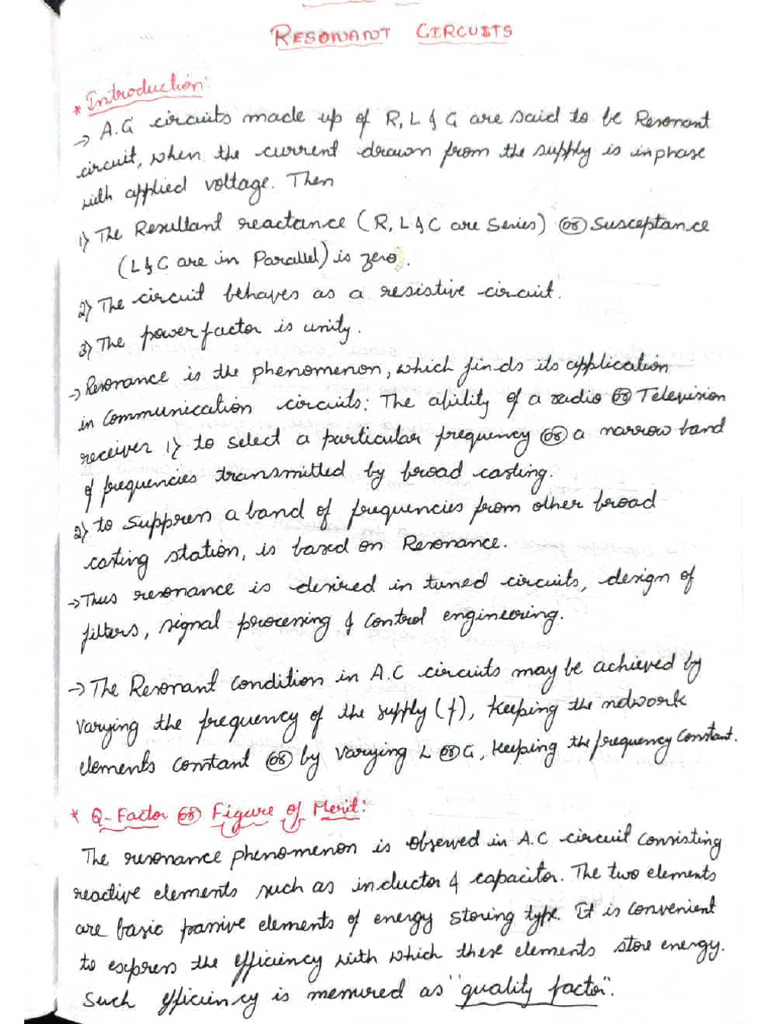 RESONANT CIRCUITS
* Introduction:
→ A.C circuits made up of R, L & C are said to be Resonant
circuit, when the current drawn from the supply is inphase
with applied voltage. Then
1) The Resultant reactance (R, L & C are Series) (or) Susceptance
(L & C are in Parallel) is zero.
2) The circuit behaves as a resistive circuit.
3) The power factor is unity.
→ Resonance is the phenomenon, which finds its application
in communication circuits: The ability of a radio (or) Television
receiver 1) to select a particular frequency (or) a narrow band
of frequencies transmitted by broad casting.
2) to suppress a band of frequencies from other broad
casting station, is based on Resonance.
→ Thus resonance is desired in tuned circuits, design of
filters, signal processing & control engineering.
→ The Resonant Condition in A.C circuits may be achieved by
varying the frequency of the supply (f), keeping the network
elements constant (or) by varying L (or) C, keeping the frequency constant.
* Q-Factor (or) Figure of Merit:
The resonance phenomenon is observed in A.C circuit consisting
reactive elements such as inductor & capacitor. The two elements
are basic passive elements of energy storing type. It is convenient
to express the efficiency with which these elements store energy.
Such efficiency is measured as "quality factor".